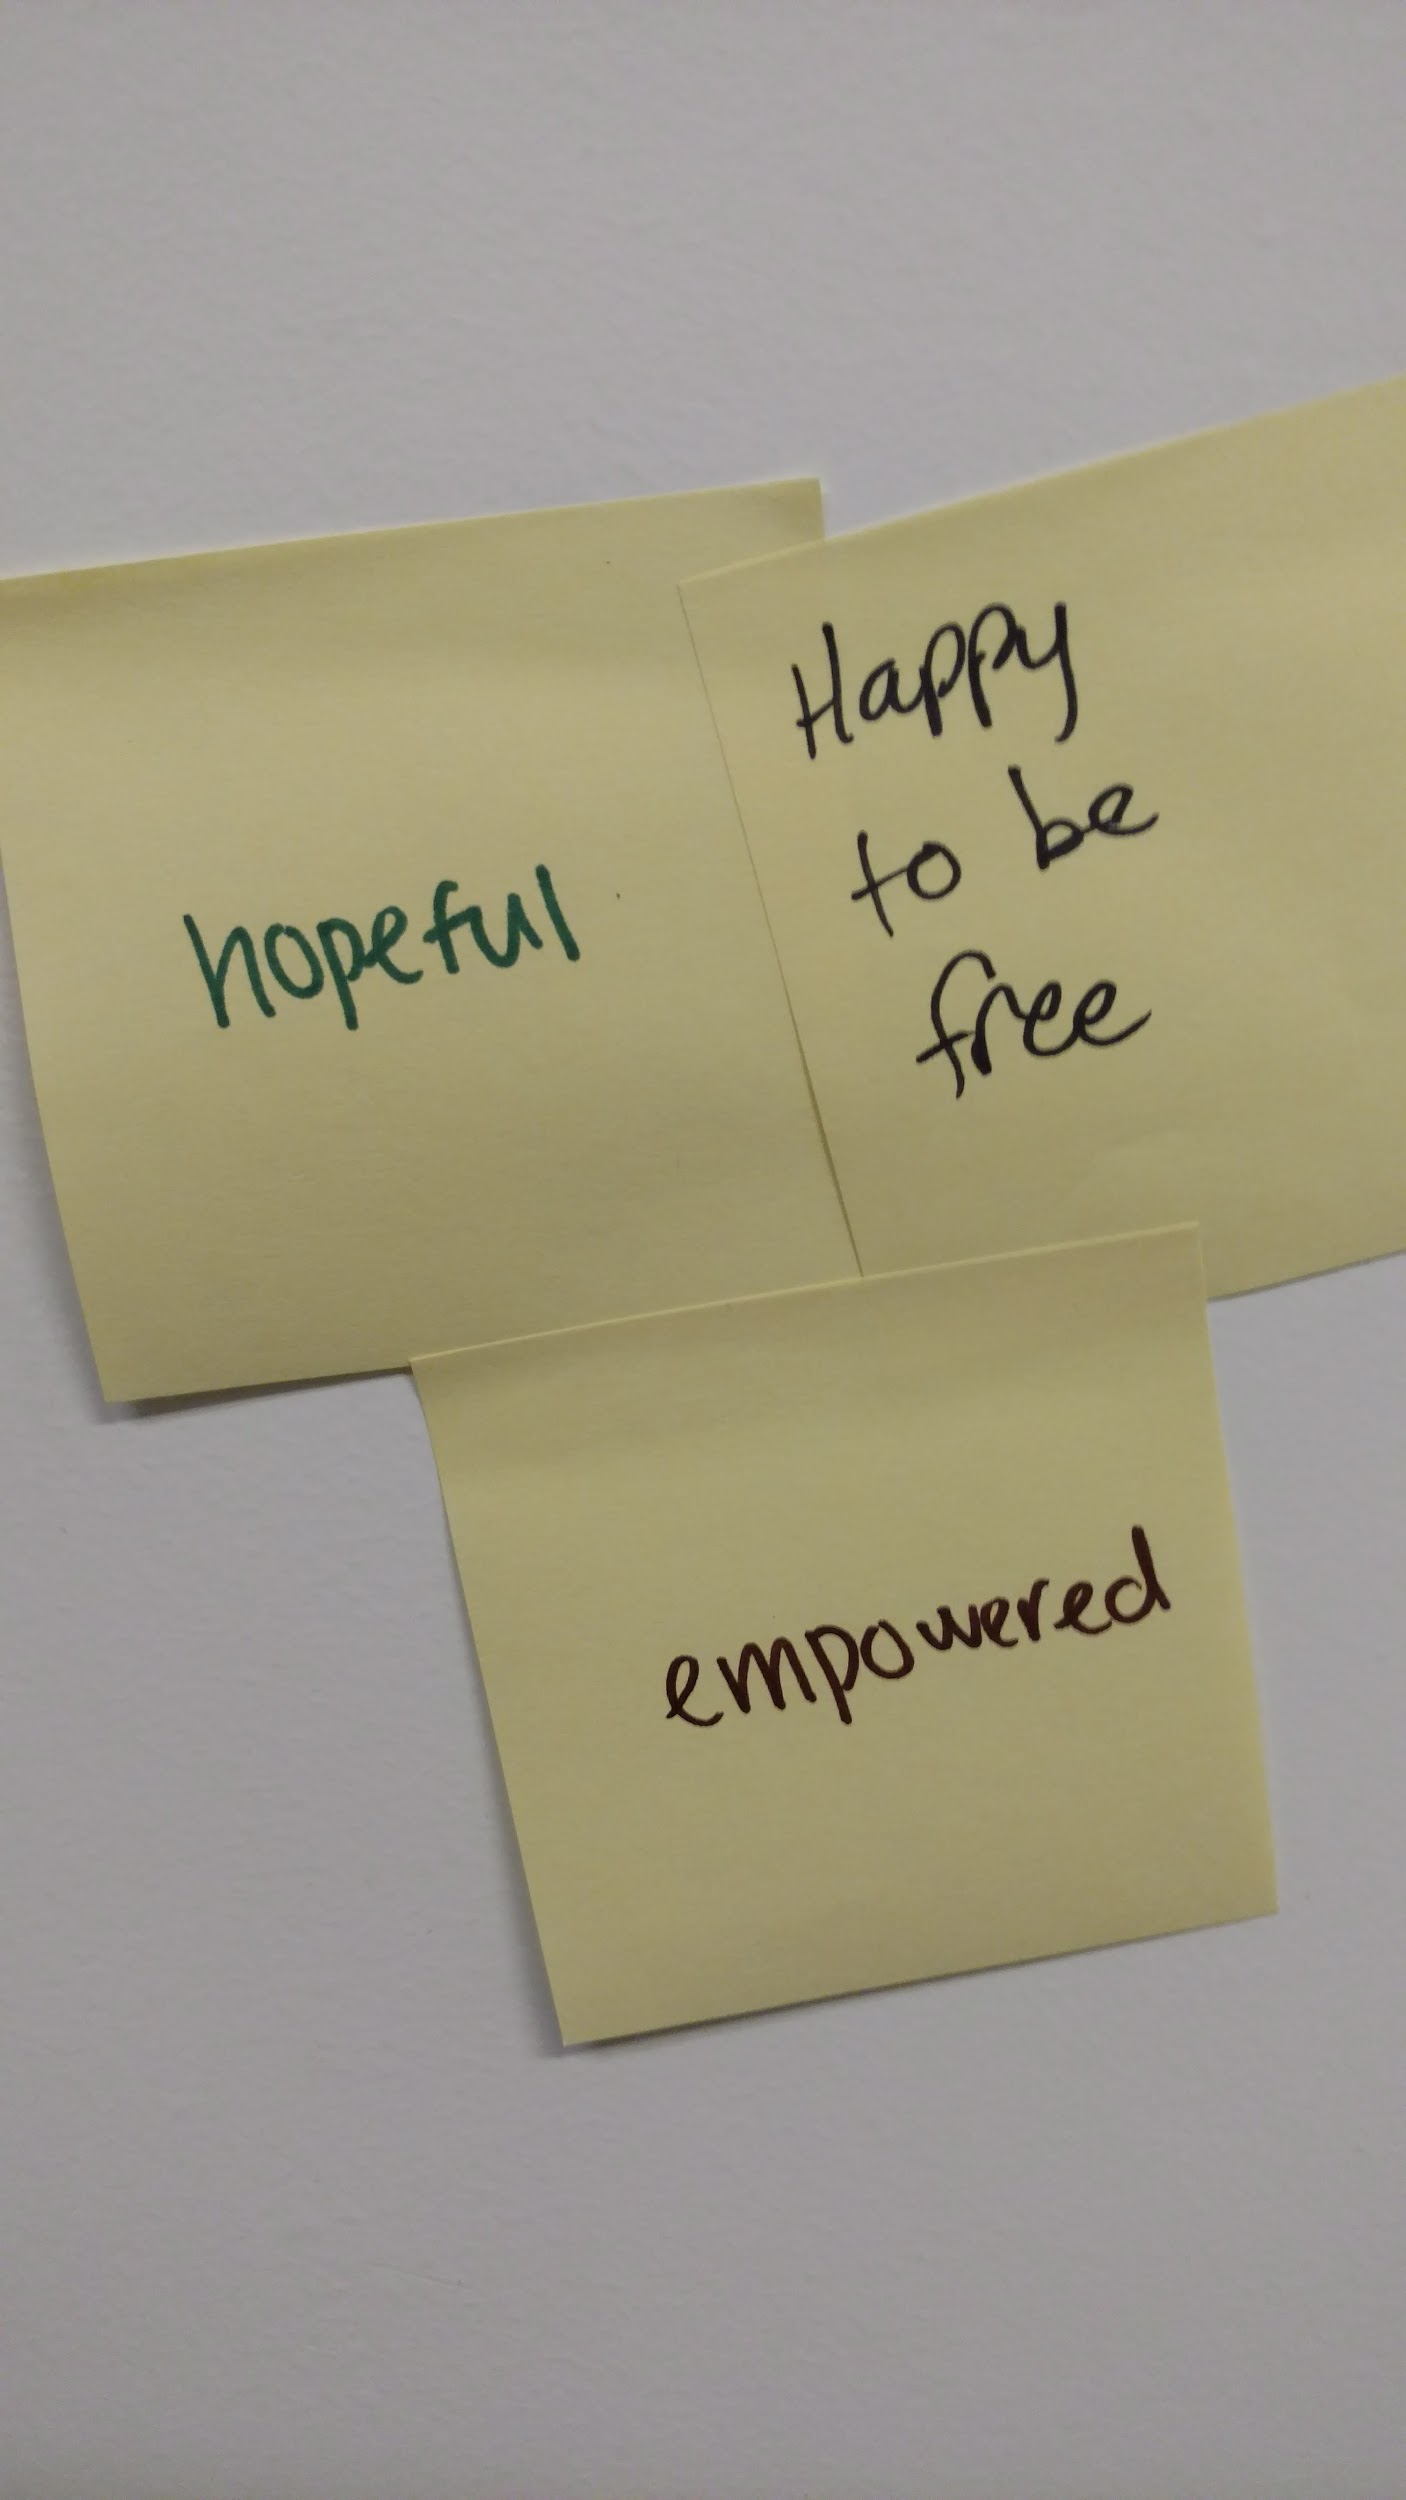 hopeful
Happy
to be
free
empowered